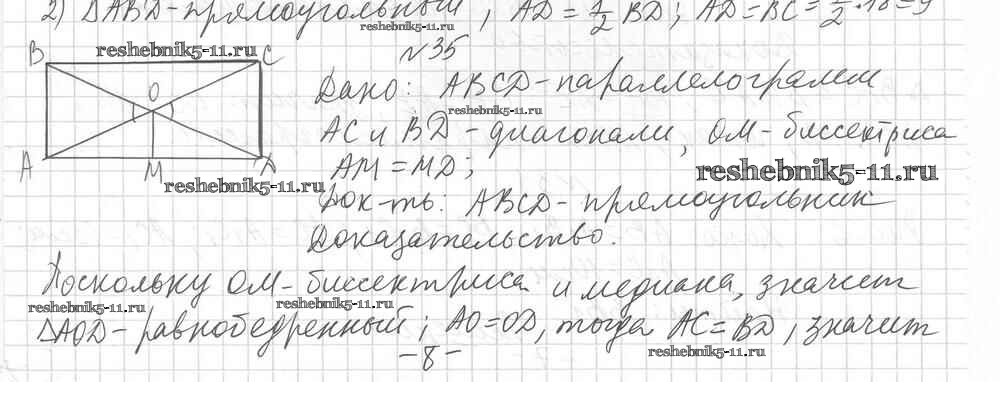 2) ΔABD-прямоугольный; AD = 1/2 BD; AD=BC= 1/2·18=9
reshebnik5-11.ru
№35
B C
reshebnik5-11.ru
O
Дано: ABCD-параллелограмм
reshebnik5-11.ru
AC и BD-диагонали, OM-биссектриса
A M D
AM=MD;
reshebnik5-11.ru
reshebnik5-11.ru
Док-ть: ABCD-прямоугольник
Доказательство.
Поскольку OM-биссектриса и медиана, значит
reshebnik5-11.ru
reshebnik5-11.ru
ΔAOD-равнобедренный; AO=OD, тогда AC=BD, значит
reshebnik5-11.ru
-8-